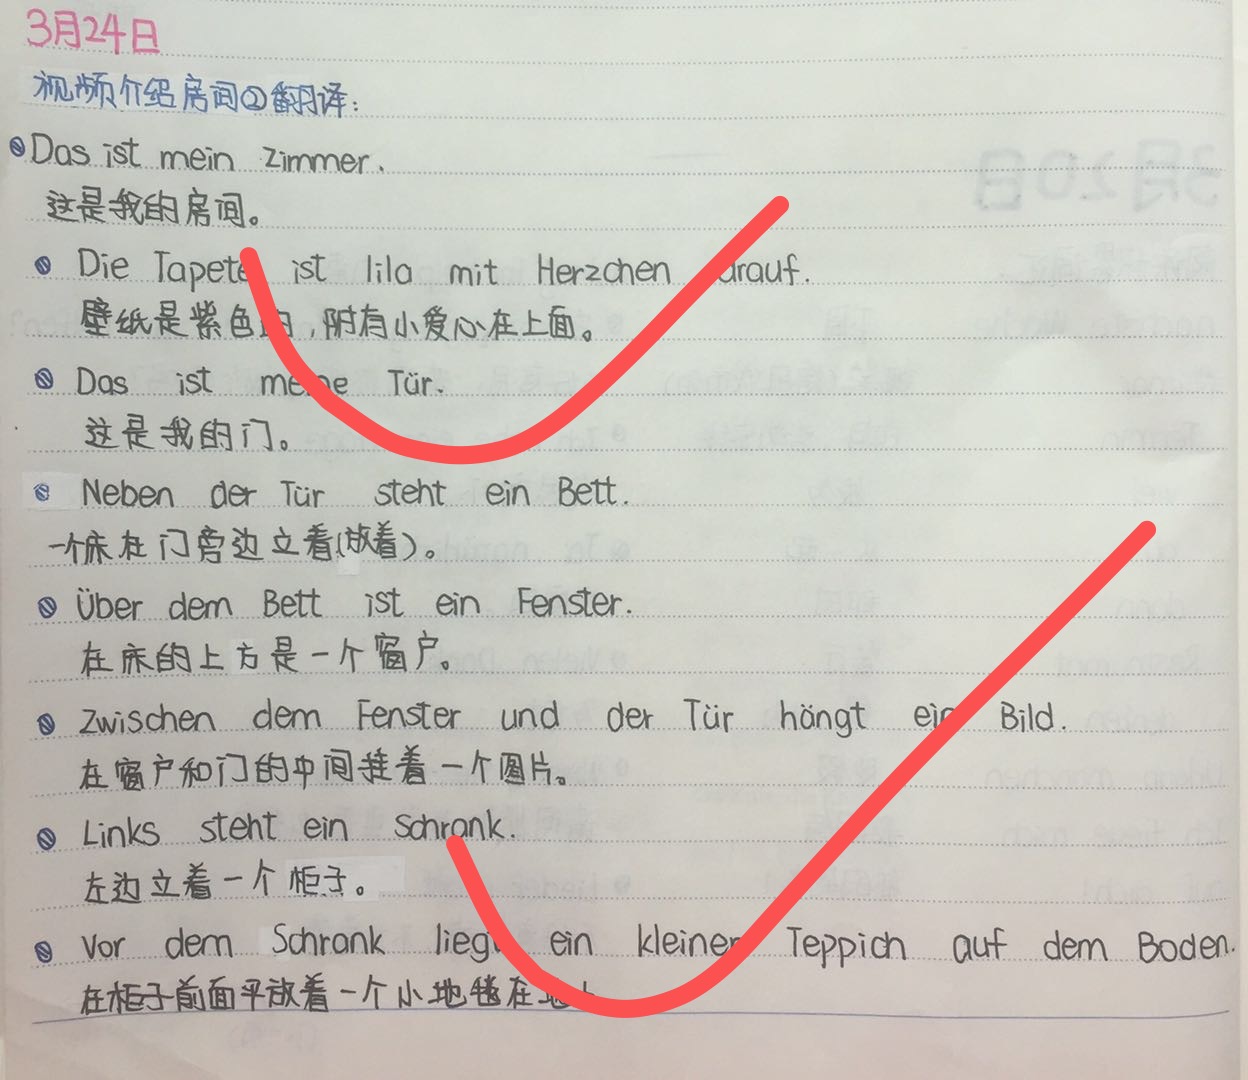 3月24日
视频介绍房间②翻译:
Das ist mein Zimmer.
这是我的房间。
Die Tapete ist lila mit Herzchen drauf.
壁纸是紫色的,附有小爱心在上面。
Das ist meine Tür.
这是我的门。
Neben der Tür steht ein Bett.
一个床在门旁边立着(放着)。
Über dem Bett ist ein Fenster.
在床的上方是一个窗户。
Zwischen dem Fenster und der Tür hängt ein Bild.
在窗户和门的中间挂着一个图片。
Links steht ein Schrank.
左边立着一个柜子。
Vor dem Schrank liegt ein kleiner Teppich auf dem Boden.
在柜子前面平放着一个小地毯在地上